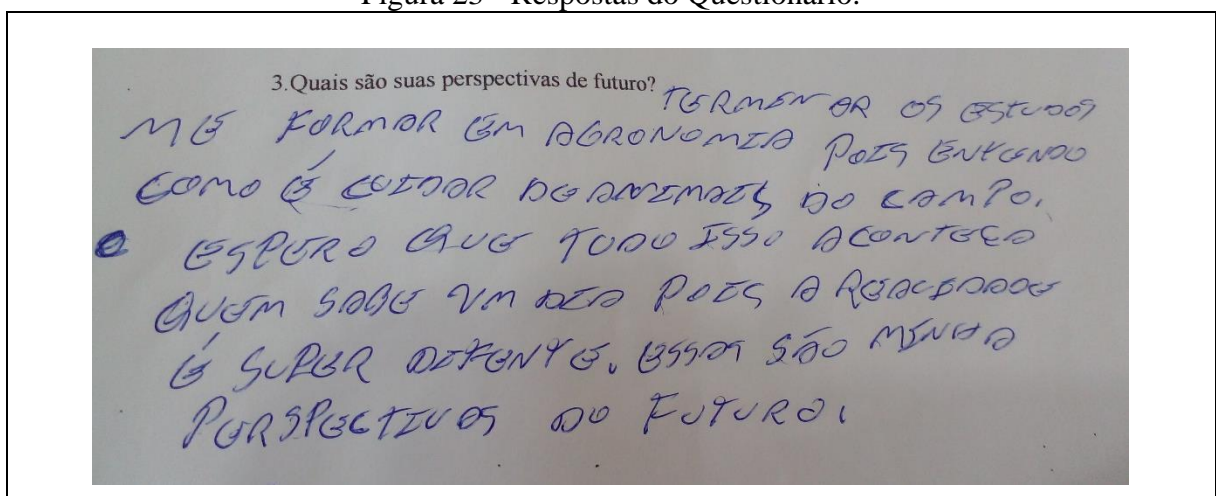 Figura 23 - Respostas do Questionário.
3.Quais são suas perspectivas de futuro? TERMINAR OS ESTUDOS
ME FORMAR EM AGRONOMIA POIS ENTENDO
COMO É CUIDAR DE ANIMAIS DO CAMPO.
ESPERO QUE TUDO ISSO ACONTEÇA
QUEM SABE UM DIA POIS A REALIDADE
É SUPER DIFENTE. ESSAS SÃO MINHA
PERSPECTIVAS DO FUTURO.